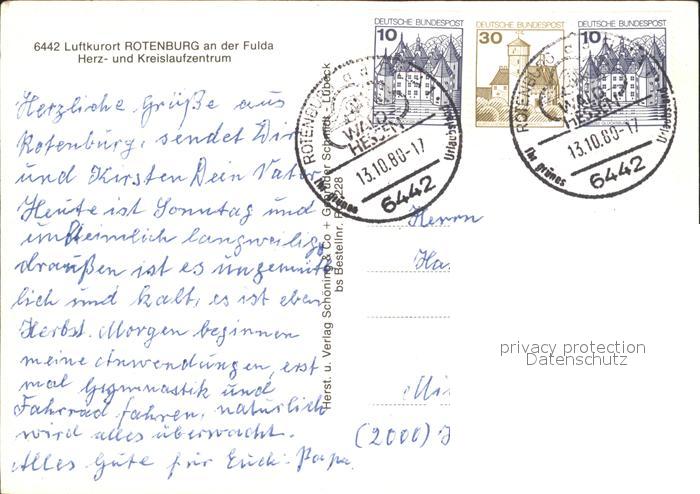 6442 Luftkurort ROTENBURG an der Fulda
Herz- und Kreislaufzentrum
Herzliche Grüße aus
Rotenburg, sendet Dir
und Kirsten Dein Vater
Heute ist Sonntag und
unheimlich langweilig,
draußen ist es ungemüt-
lich und kalt, es ist eben
Herbst. Morgen beginnen
meine Anwendungen, erst
mal Gymnastik und
Fahrrad fahren, natürlich
wird alles überwacht.
Alles Gute für Euch. Papa.
Herst. u. Verlag Schöning & Co + Gebrüder Schmidt - Lübeck
bs Bestellnr.
10 DEUTSCHE BUNDESPOST
30 DEUTSCHE BUNDESPOST
10 DEUTSCHE BUNDESPOST
ROTENBURG
WALD
HESSEN
13.10.80-17
6442
Ihr grünes
ROTENBURG
WALD
HESSEN
13.10.80-17
6442
Ihr grünes
Herrn
Ha
(2000)
privacy protection
Datenschutz